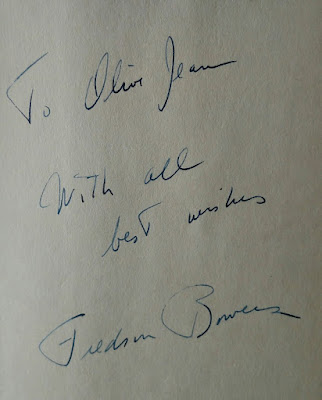 To Olive Jean
With all
best wishes
Fredson Bowers